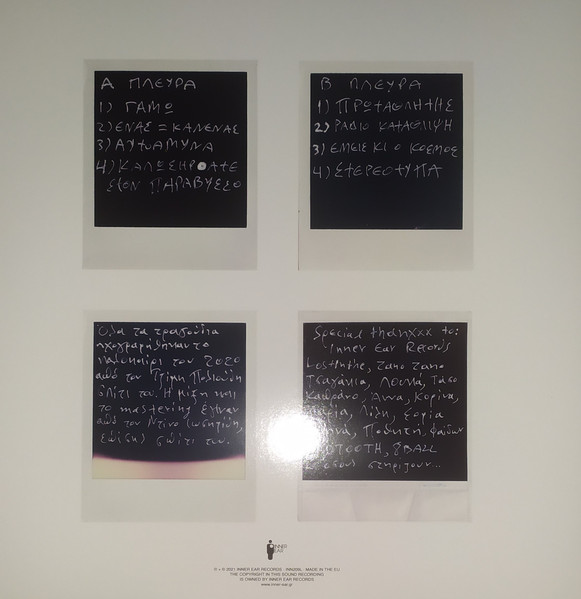 Α ΠΛΕΥΡΑ
1) ΓΑΜΩ
2) ΕΝΑΣ = ΚΑΝΕΝΑΣ
3) ΑΥΤΟΑΜΥΝΑ
4) ΚΑΛΩΣΗΡΘΑΤΕ
ΣΤΟΝ ΠΑΡΑΒΥΣΣΟ
Β ΠΛΕΥΡΑ
1) ΠΡΩΤΑΘΛΗΤΗΣ
2) ΡΑΔΙΟ ΚΑΤΑΘΛΙΨΗ
3) ΕΜΕΙΣ ΚΙ Ο ΚΟΣΜΟΣ
4) ΣΤΕΡΕΟΤΥΠΑ
Όλα τα τραγούδια
ηχογραφήθηκαν το
καλοκαίρι του 2020
από τον
σπίτι του. Η μίξη και
το mastering έγιναν
από τον Ντίνο
επίσης) σπίτι του.
Special thanxxx to:
Inner Ear Records
Τζαπο Τζαπο
Τσαχάλια, Λουνά, Τάσο
Άννα, Κορίνα,
Λίζη, Σοφία
8BALL
όσους στηρίζουν...
INNER
EAR
℗ + © 2021 INNER EAR RECORDS · MADE IN THE EU
THE COPYRIGHT IN THIS SOUND RECORDING
IS OWNED BY INNER EAR RECORDS
www.inner-ear.gr